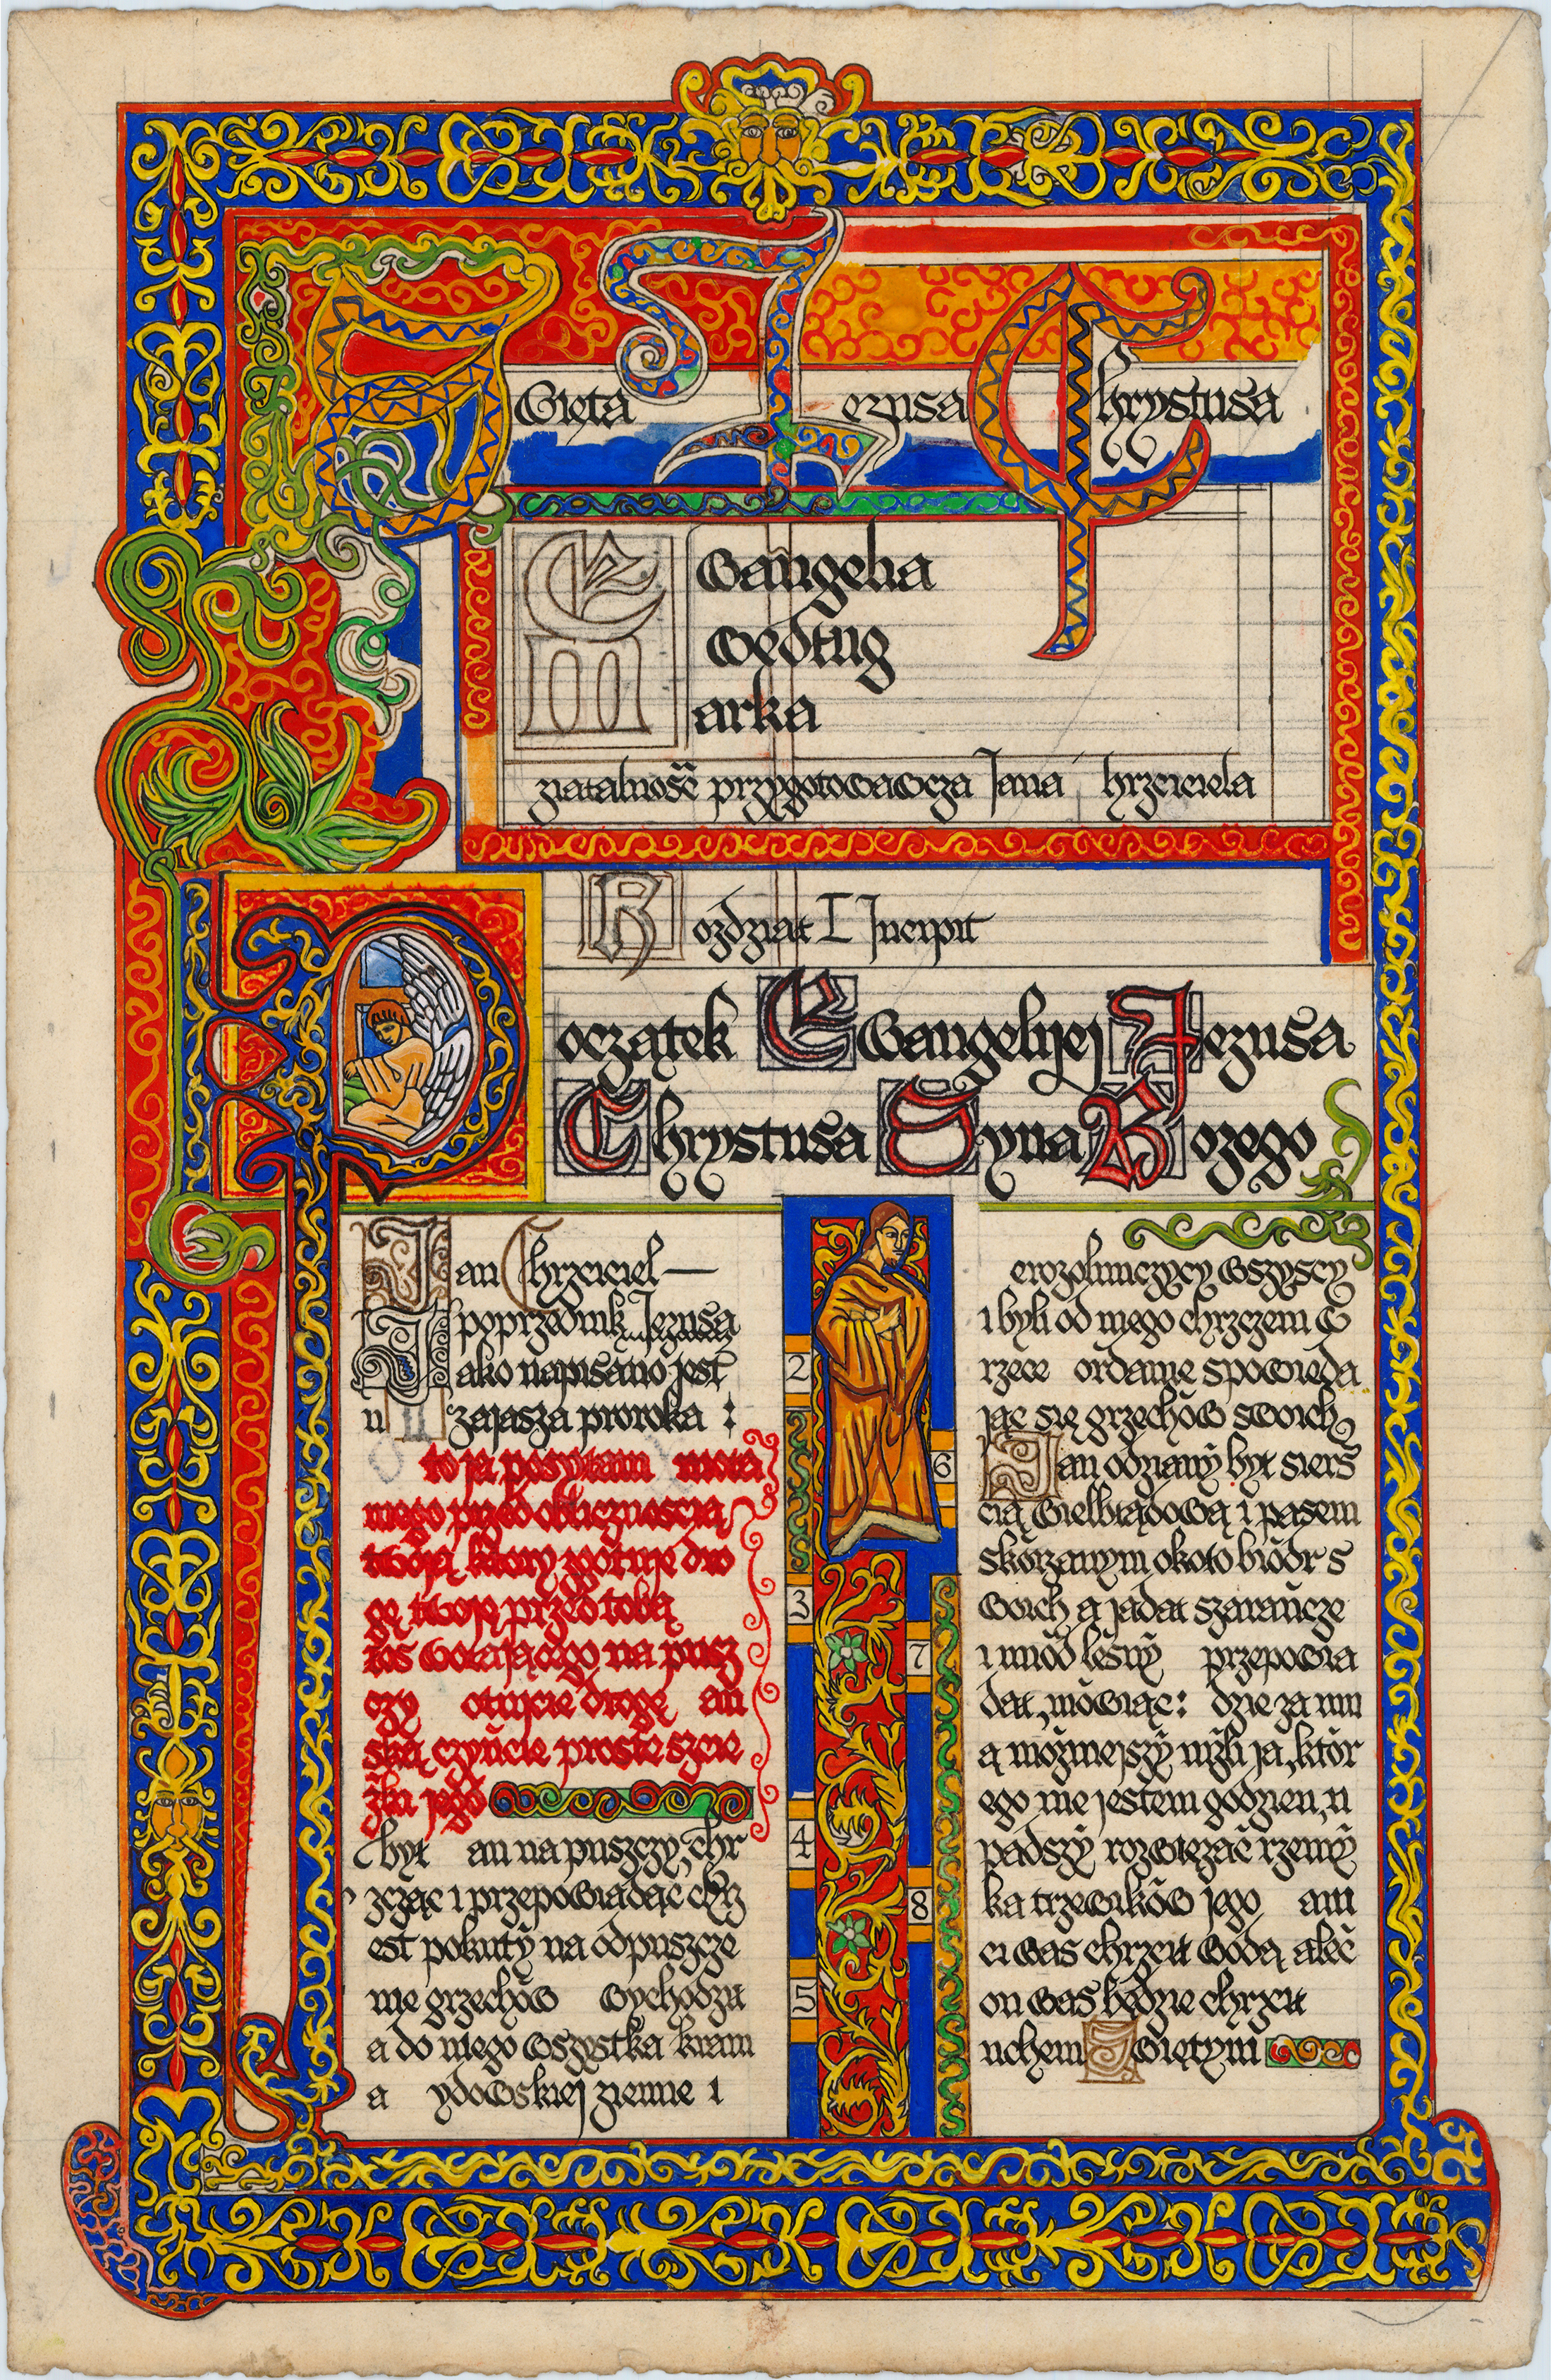 Święta Jezusa Chrystusa
Ewangelia
według
Marka
ziałalność przygotowawcza Jana hrzciciela
Rozdział I Incipit
Początek Ewangelijej Jezusa
Chrystusa Syna Bożego
Jan Chrzciciel —
poprzednik Jezusa
Jako napisano jest
u zajasza proroka :
to ja posyłam moia
mego przed oblicznością
twoją, ktory zgotuje dro
gę twoję przed tobą
łos wołającego na pusz
czy otujcie drogę ań
ską czyńcie proste szcie
żki jego
był an na puszczy, chr
zcząc i przepowiadąc chrz
est pokuty na odpuszcze
nie grzechów wychodził
a do niego wszystka krain
a ydowskiej ziemie i
2
3
4
5
6
7
8
erozolimczycy wszyscy
i byli od niego chrzczeni w
rzece ordanie spowieda
jąc się grzechów swoich
Jan odziany był sierś
cią wielbłądową i pasem
skórzanym około biódr s
woich a jadał szarańcze
i miód leśny przepowia
dał, mówiąc: dzie za mn
ą możniejszy niżli ja, któr
ego nie jestem godzien, u
padszy rozwięzać rzemy
ka trzewików jego am
ci was chrzcił wodą, aleć
on was będzie chrzcił
uchem Świętym